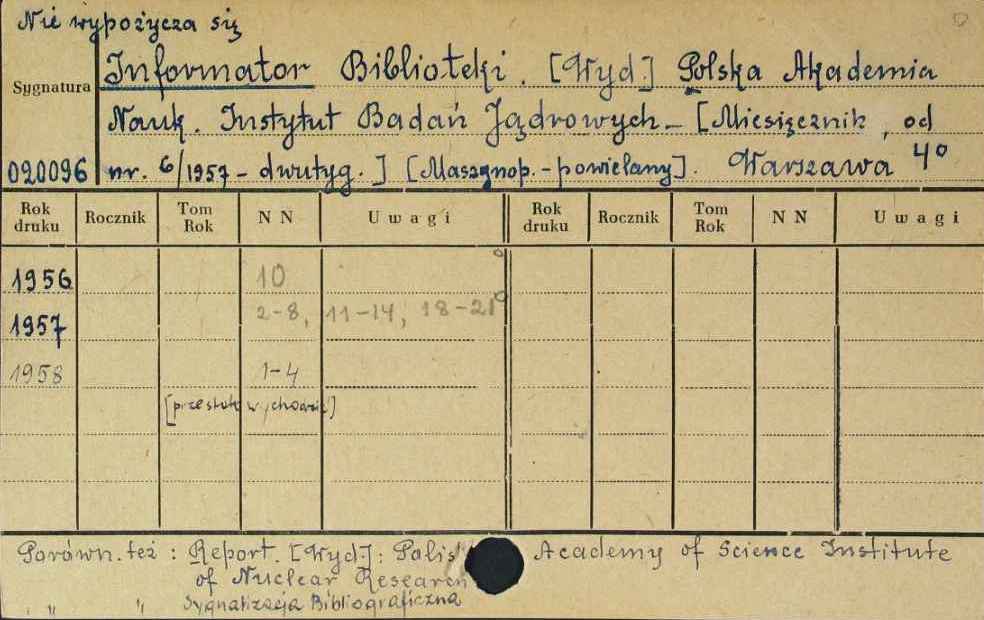 Nie wypożycza się
Sygnatura
Informator Biblioteki. [Wyd.] Polska Akademia
Nauk. Instytut Badań Jądrowych. - [Miesięcznik, od
020096 nr. 6/1957 - dwutyg.] [Maszynop. - powielany]. Warszawa 4°
Rok druku Rocznik Tom Rok NN Uwagi Rok druku Rocznik Tom Rok NN Uwagi
1956 10
1957 2-8, 11-14, 18-21
1958 1-4
[przestał wychodzić]
Porówn. też : Report. [Wyd]: Polish Academy of Science Institute
of Nuclear Research
" " Sygnalizacja Bibliograficzna